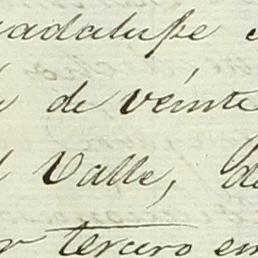 uadalupe
de veinte
Valle, de
tercero en